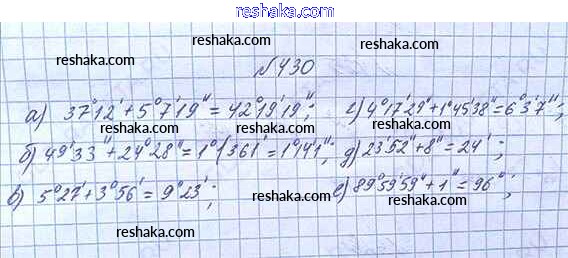 reshaka.com
reshaka.com reshaka.com
№430
reshaka.com reshaka.com reshaka.com
а) 37°12' + 5°7'19" = 42°19'19"; г) 4°17'29" + 1°45'38" = 6°3'7";
б) 49'33" + 24°28" = 1°(361 = 1°14'1"; д) 23'52" + 8" = 24';
в) 5°27' + 3°56' = 9°23'; е) 89°59'59" + 1" = 96°;
reshaka.com reshaka.com reshaka.com
reshaka.com reshaka.com